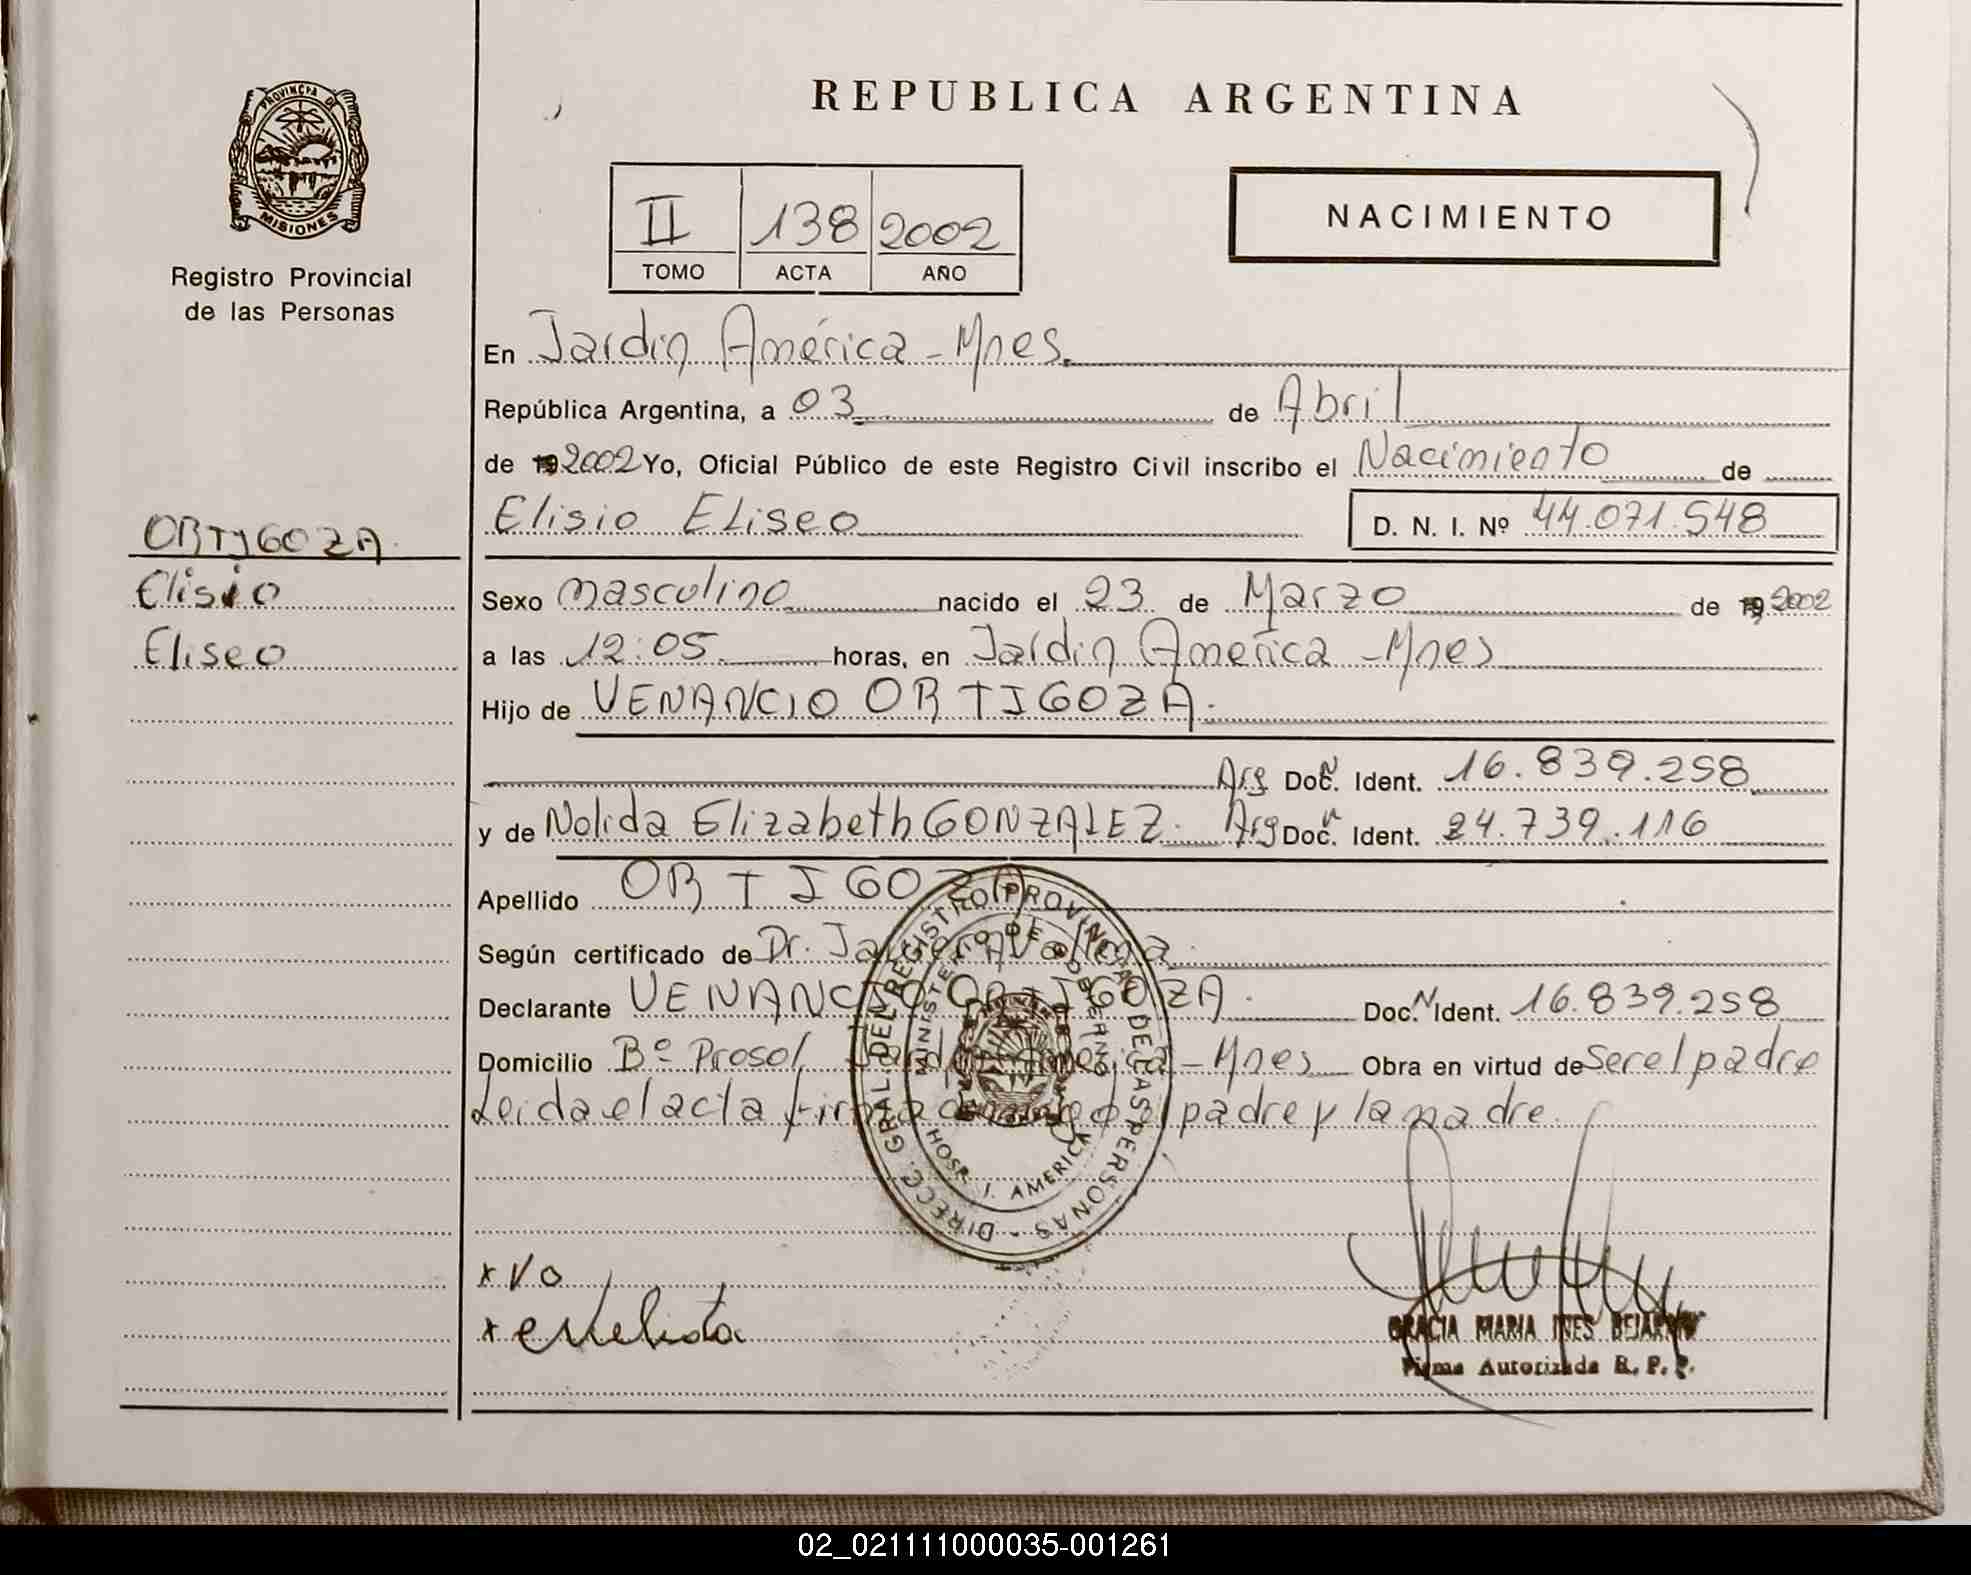 PROVINCIA DE
MISIONES
Registro Provincial
de las Personas
ORTIGOZA.
Elisio
Eliseo
REPUBLICA ARGENTINA
II 138 2002
TOMO ACTA AÑO
NACIMIENTO
En Jardin América - Mnes.
República Argentina, a 03 de Abril
de 19 2002 Yo, Oficial Público de este Registro Civil inscribo el Nacimiento de
Elisio Eliseo D. N. I. Nº 44.071.548
Sexo masculino nacido el 23 de Marzo de 19 2002
a las 12:05 horas, en Jardin América - Mnes
Hijo de VENANCIO ORTIGOZA.
Arg Doc. N Ident. 16.839.258
y de Nolida Elizabeth GONZALEZ. Arg Doc. N Ident. 24.739.116
Apellido ORTIGOZA
Según certificado de Dr.
Declarante VENANCIO ORTIGOZA. Doc. N Ident. 16.839.258
Domicilio Bº Prosol, Jardin América - Mnes Obra en virtud de ser el padre
Leida el acta firma el padre y la madre.
DIRECC. GRAL. DEL REGISTRO PROVINCIAL DE LAS PERSONAS -
MINISTERIO DE GOBIERNO
HOSP. J. AMERICA
x VO
x
GRACIA MARIA INES BEJARANO
Firma Autorizada R. P. P.
02_021111000035-001261